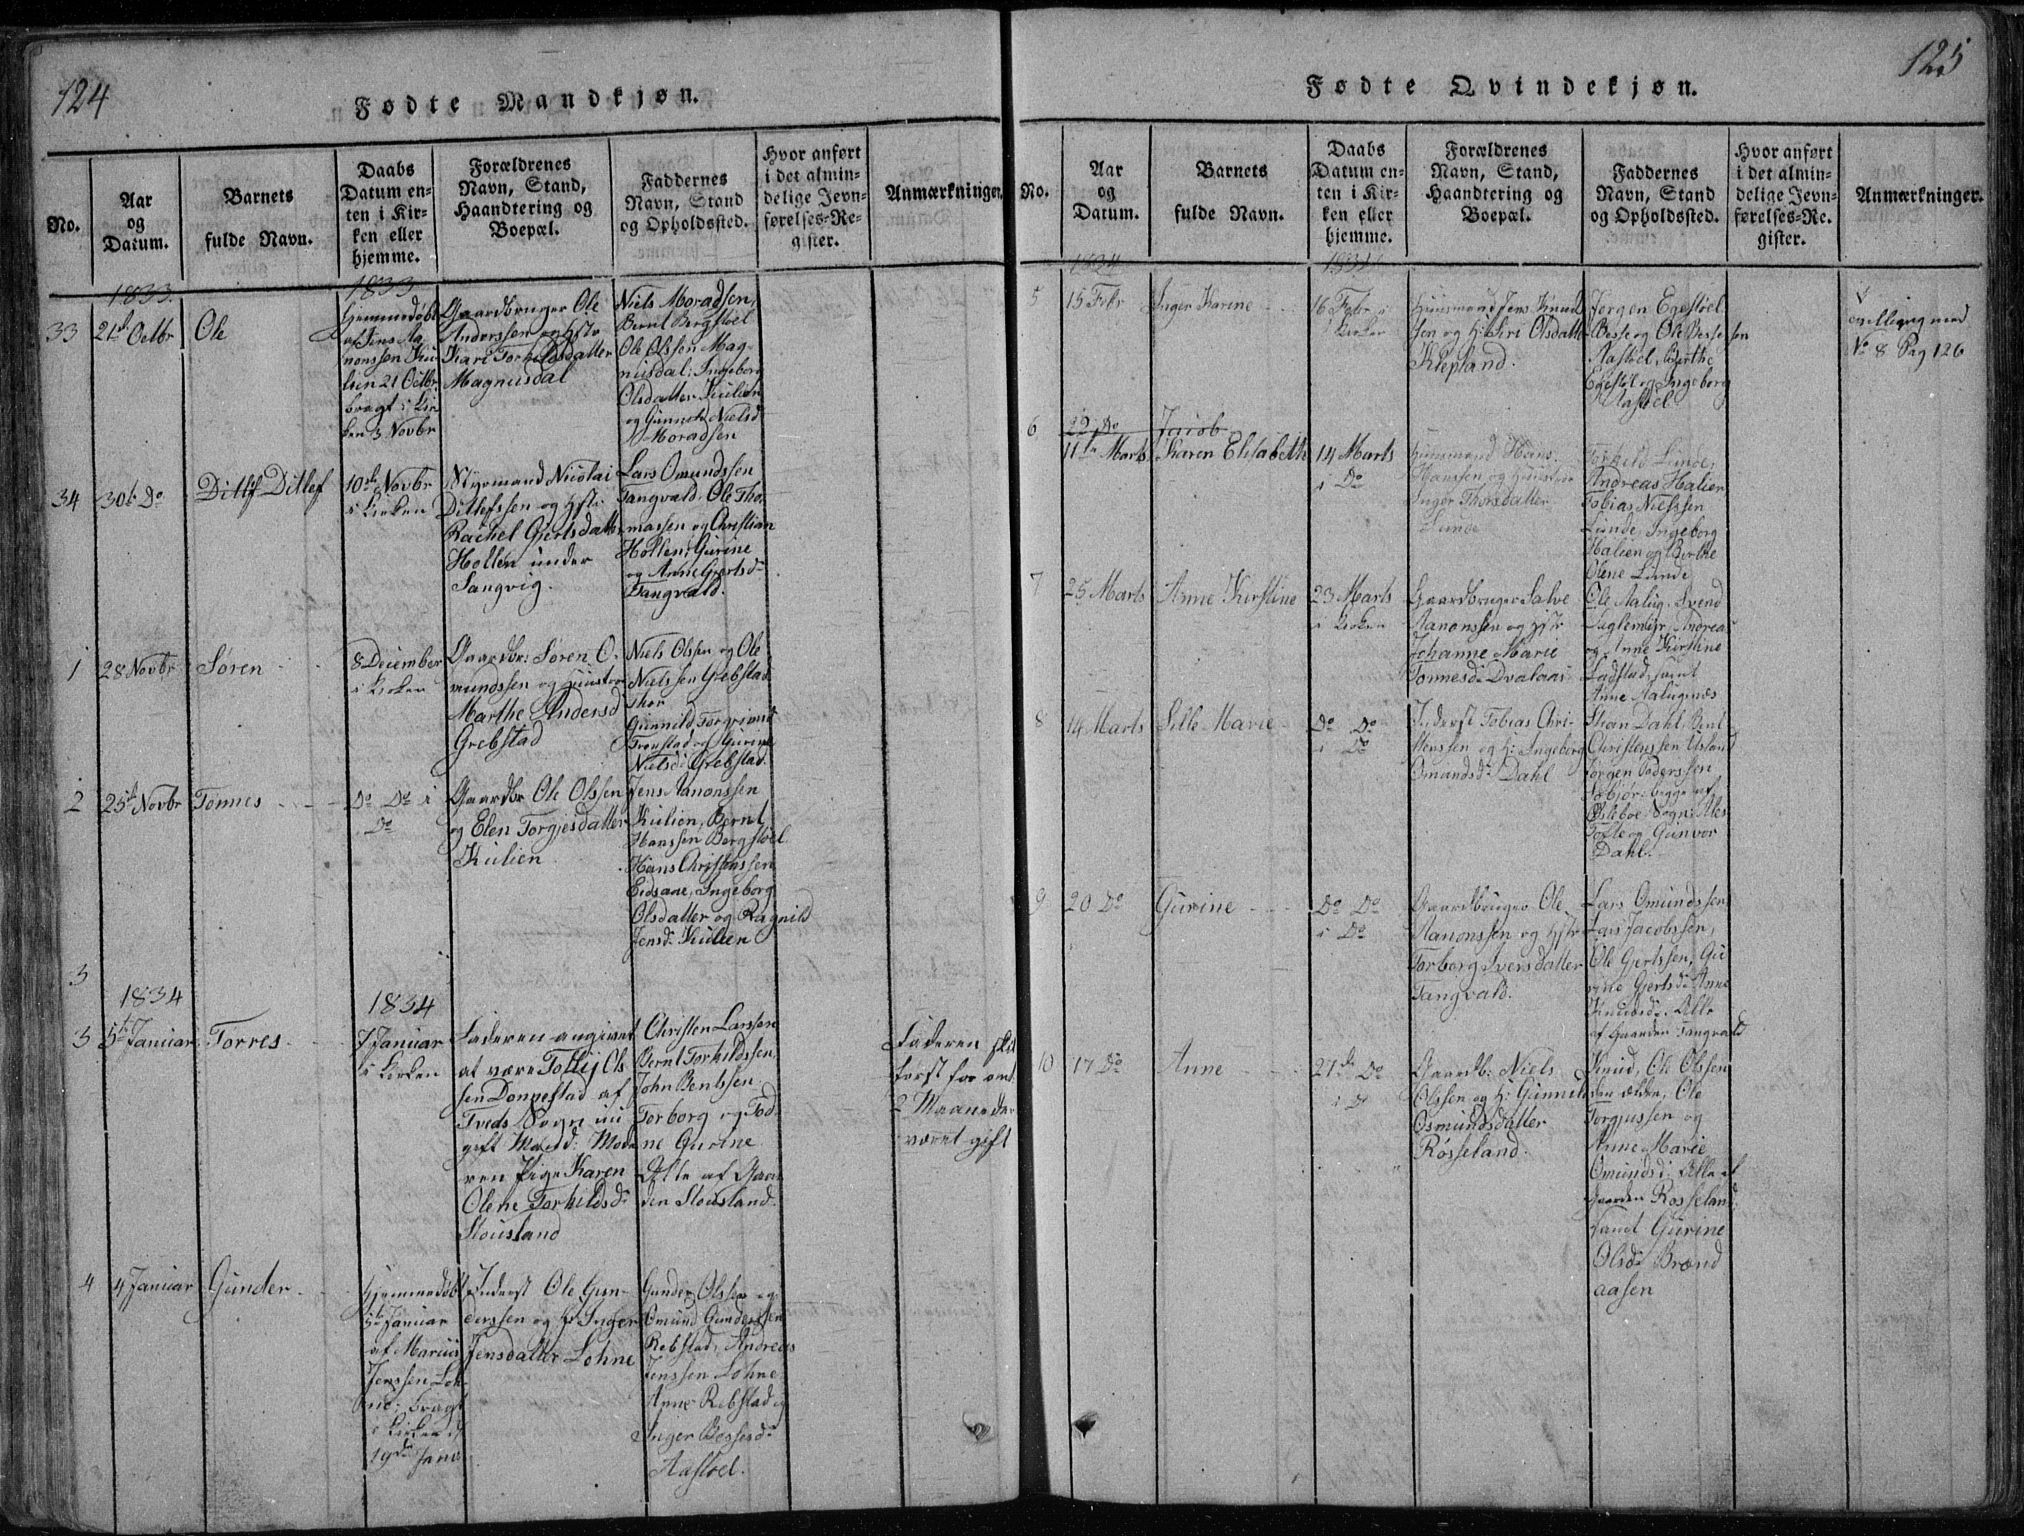 124
Fødte Mandkjøn.
No.
Aar
og
Datum.
Barnets
fulde Navn.
Daabs
Datum en-
ten i Kir-
ken eller
hjemme.
Forældrenes
Navn, Stand,
Haandtering og
Boepæl.
Faddernes
Navn, Stand
og Opholdssted.
Hvor anført
i det almin-
delige Jevn-
førelses-Re-
gister.
Anmærkninger.
1833
1833
33
21de Octbr
Ole
Hjemmedøbt
af Jens Aa-
nonssen Ku-
lien 21 Octbr
bragt i Kir-
ken 3 Novbr
Gaardbruger Ole
Anderssen og Hstr
Kari Torkildsdatter
Magnusdal
Niels Moradsen,
Bernt Bergstøel
Ole Olssen Mag-
nusdal; Ingeborg
Olsdatter Kulien
og Gunneld Nielsd
Moradsen
34
30te Do
Ditlef
10de Novbr
i Kirken
Styrmand Nicolai
Ditlefssen og Hstr
Rachel Gjertsdatter
Hollen under
Sangvig.
Lars Omundssen
Tangvald, Ole Tho-
massen og Christian
Hollen; Gurine
og Anne Gjertsd:
Tangvald.
1
28 Novbr
Søren
8 December
i Kirken
Gaardbr: Søren O-
mundssen og Hustroe
Marthe Andersd
Grebstad
Niels Olssen og Ole
Nielssen Grebstad
Thor
Gunnild Torgrimsd
Trønstad og Gurine
Nielsd: Grebstad.
2
25de Novbr
Tønnes
Do Do i
Do
Gaardbr Ole Olssen
og Elen Torgjesdatter
Kulien
Jens Aanonssen
Kulien, Bernt
Hanssen Bergstøel
Hans Christenssen
Eidsaae, Ingeborg
Olsdatter og Ragnild
Jensd: Kulien
3
1834
1834
3
5te Januar
Torres
7 Januar
i Kirken
Faderen angivet
at være Tollef Ols-
sen Donnestad af
Tveds Sogn nu
gift Mand: Mode-
ren Pige Karen
Olene Torkildsd:
Stousland
Christen Larssen
Bernt Torkildssen,
John Bentssen
Torborg og Tod-
ne Gurine
Alle af Gaar-
den Stousland.
Faderen skal
først for omt
2 Maaneder
været gift
4
4 Januar
Gunder
Hjemmedøbt
5te Januar
af Marius
Jenssen Loh-
ne; bragt
i Kirken d
19de Janr
Inderst Ole Gun-
derssen og H: Inger
Jensdatter Lohne
Gunder Olssen og
Omund Gunderssen
Rebstad, Andreas
Jenssen Lohne
Anne Rebstad og
Inger Bessesd:
Aastøel.
125
Fødte Qvindekjøn.
No.
Aar
og
Datum.
Barnets
fulde Navn.
Daabs
Datum en-
ten i Kir-
ken eller
hjemme.
Forældrenes
Navn, Stand,
Haandtering og
Boepæl.
Faddernes
Navn, Stand
og Opholdssted.
Hvor anført
i det almin-
delige Jevn-
førelses-Re-
gister.
Anmærkninger.
1834
1834
5
15 Febr
Inger Karine
16 Febr
i Kirken
Huusmand Jens Knud-
sen og H: Siri Olsdatter
Klepland.
Jørgen Egestøel
Besse og Ole Bessesen
Aastøel, Berthe
Egestøl og Ingeborg
Aastøel
Tvilling med
No 8 Pag 126
6
22 Do
Jacob
11te Marts
Karen Elisabeth
14 Marts
i Do
Huusmand Hans
Hanssen og Hustroe
Inger Thorsdatter
Lunde
Torkild Lunde,
Andreas Halien
Tobias Nielssen
Lunde, Ingeborg
Halien og Berthe
Olene Lunde
7
25 Marts
Anne Kirstine
23 Marts
i Kirken
Gaardbruger Salve
Aanonssen og Hstr
Johanne Marie
Tønnesd: Dvalaas
Ole Aalug, Svend
Andreas
og Anne Kirstine
Ladstad, samt
Anne Aalugnæs
8
14 Marts
Sille Marie
Do Do
i Do
Inderst Tobias Chri-
stenssen og H: Ingeborg
Omundsd: Dahl
Stian Dahl, Bent
Christenssen Usland
Jørgen Pederssen
begge af
Øslebøe Sogn; Ales
Tofte og Gunvor
Dahl.
9
20 Do
Gurine
Do Do
i Do
Gaardbruger Ole
Aanonssen og Hstr
Torborg Iversdatter
Tangvald.
Lars Omundssen,
Lars Jacobssen,
Ole Gjertssen, Gu-
rine Gjertsd: Anne
Knudsd: Alle
af Gaarden Tangvald
10
17 Do
Anne
27de Do
i Do
Gaardb: Niels
Olssen og H: Gunnild
Osmundsdatter
Røsseland.
Knud, Ole Olssen
den ældre, Ole
Torgjussen og
Anne Marie
Omundsd: Alle af
Gaarden Rosseland,
samt Gurine
Olsd: Brænd-
aasen